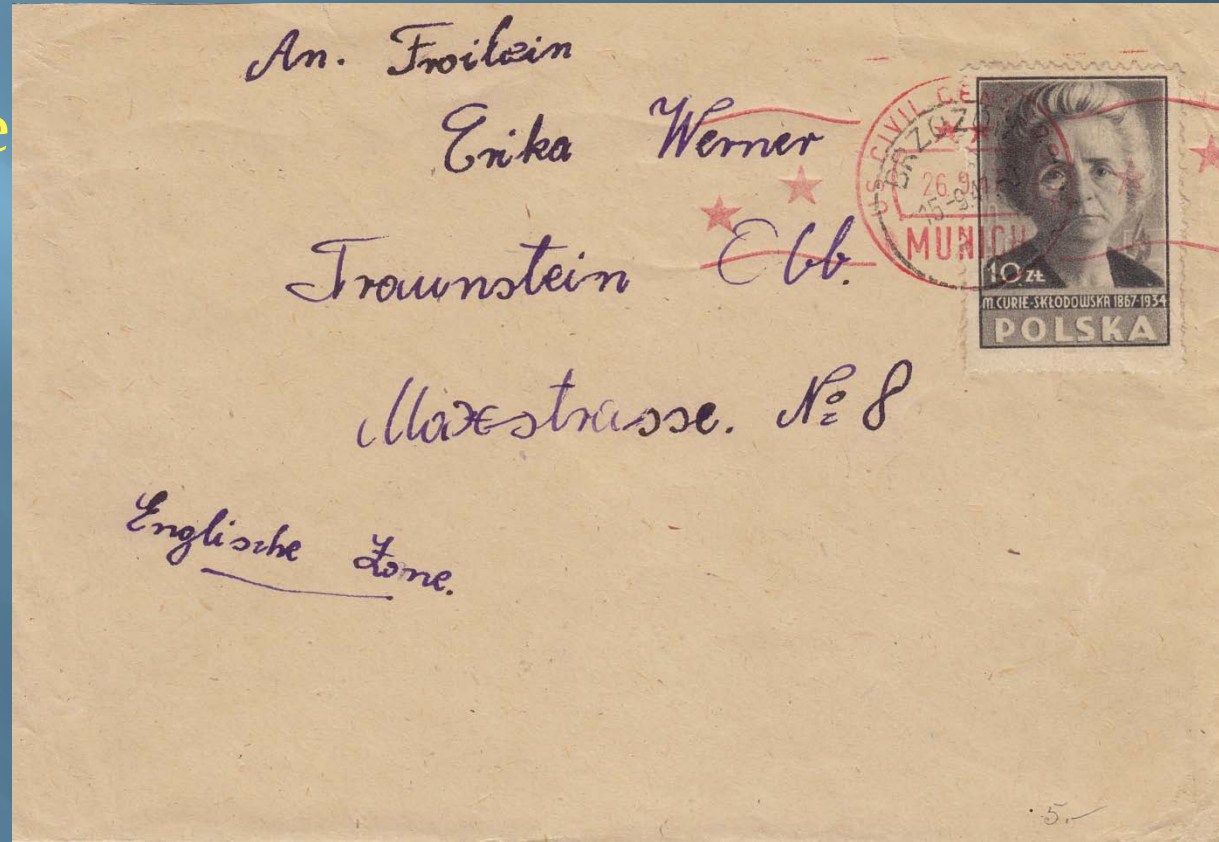 An. Froilein
Erika Werner
Traunstein Obb.
Maxstrasse. № 8
Englische Zone.
US CIVIL CEN
BRZOZÓ
26.9.47
15-9.47
MUNICH
10 ZŁ
M. CURIE-SKŁODOWSKA 1867-1934
POLSKA
5.-
e